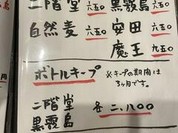 二階堂 六五〇 黒霧島 六五〇
自然麦 六五〇 安田 六五〇
魔王 九五〇
ボトルキープ ※キープの期間は
3ヶ月です。
二階堂 各二、八〇〇
黒霧島